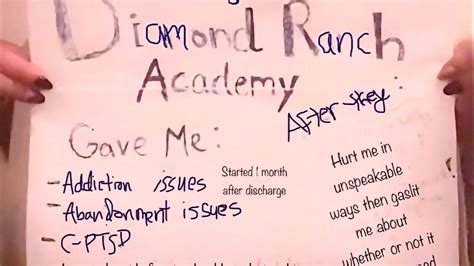 Diamond Ranch
Academy
After stay:
Gave Me:
- Addiction issues
Started 1 month
after discharge
- Abandonment issues
- C-PTSD
Hurt me in
unspeakable
ways then gaslit
me about
whether or not it